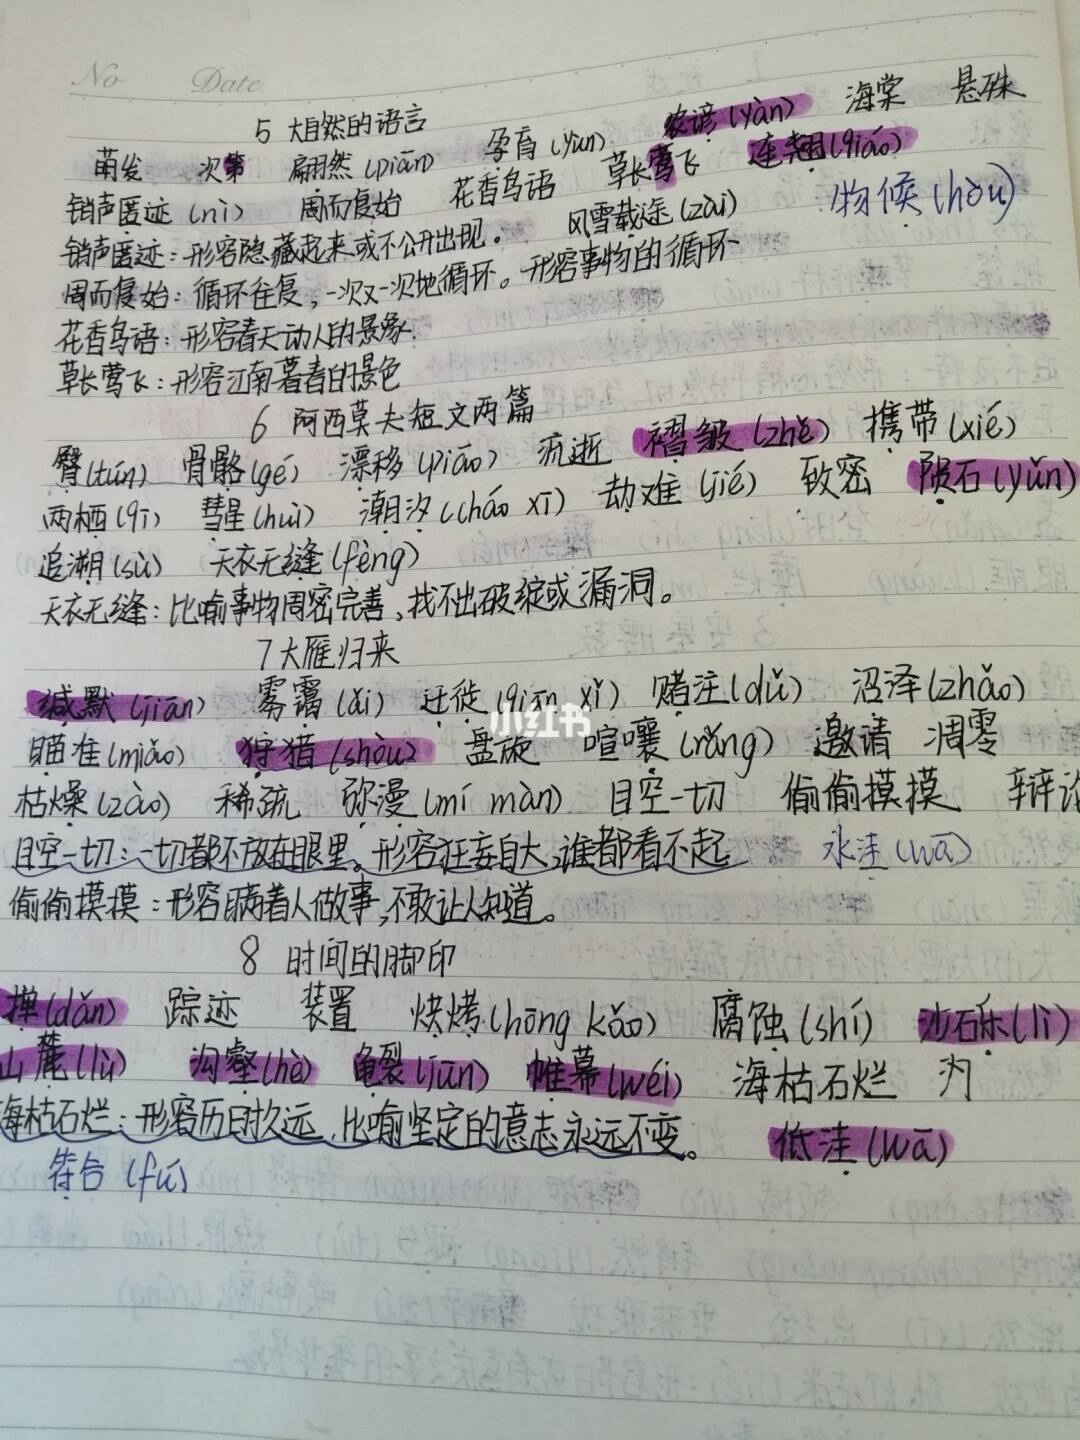 No Date
5 大自然的语言
萌发 次第 翩然(piān) 孕育(yùn) 农谚(yàn) 海棠 悬殊
销声匿迹(nì) 周而复始 花香鸟语 草长莺飞 连翘(qiáo)
风雪载途(zài) 物候(hòu)
销声匿迹：形容隐藏起来或不公开出现。
周而复始：循环往复，一次又一次地循环。形容事物的循环
花香鸟语：形容春天动人的景象.
草长莺飞：形容江南暮春的景色
6 阿西莫夫短文两篇
臀(tún) 骨骼(gé) 漂移(piāo) 流逝 褶皱(zhě) 携带(xié)
两栖(qī) 彗星(huì) 潮汐(cháo xī) 劫难(jié) 致密 陨石(yǔn)
追溯(sù) 天衣无缝(fèng)
天衣无缝：比喻事物周密完善，找不出破绽或漏洞。
7 大雁归来
缄默(jiān) 雾霭(ǎi) 迁徙(qiān xǐ) 赌注(dǔ) 沼泽(zhǎo)
小红书
瞄准(miáo) 狩猎(shòu) 盘旋 喧嚷(rǎng) 邀请 凋零
枯燥(zào) 稀疏 弥漫(mí màn) 目空一切 偷偷摸摸 辩论
目空一切：一切都不放在眼里。形容狂妄自大，谁都看不起 水洼(wā)
偷偷摸摸：形容瞒着人做事，不敢让人知道。
8 时间的脚印
掸(dǎn) 踪迹 装置 烘烤(hōng kǎo) 腐蚀(shí) 沙砾(lì)
山麓(lù) 沟壑(hè) 龟裂(jūn) 帷幕(wéi) 海枯石烂
海枯石烂：形容历日持久远，比喻坚定的意志永远不变。 低洼(wā)
符合(fú)